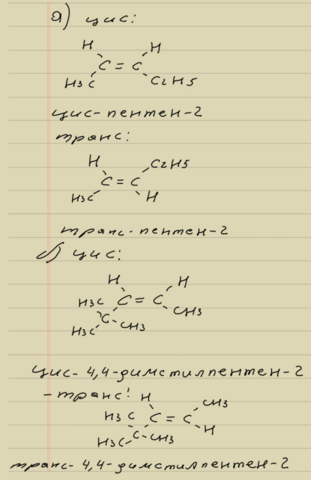 а) цис:
H H
C = C
H3C C2H5
цис-пентен-2
транс:
H C2H5
C = C
H3C H
транс-пентен-2
б) цис:
H H
H3C C = C
C CH3
H3C CH3
цис-4,4-диметилпентен-2
-транс:
H CH3
H3C C = C
H3C C CH3 H
транс-4,4-диметилпентен-2